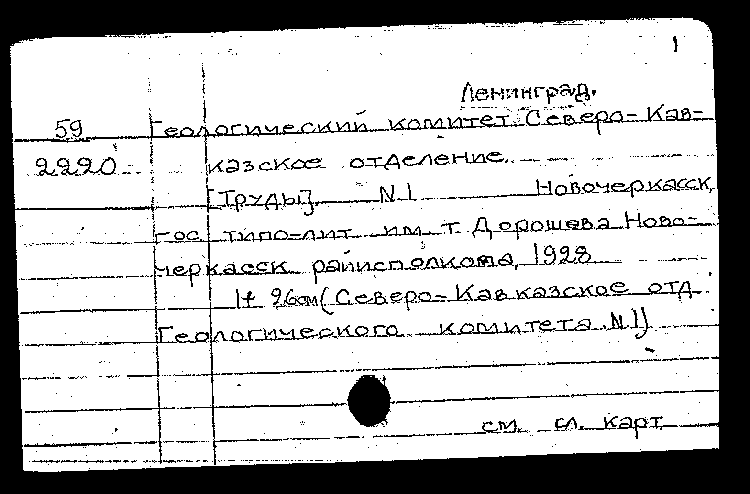 1
Ленинград.
59 Геологический комитет. Северо-Кав-
2220 казское отделение.
[Труды]. N1 Новочеркасск,
гос. типо-лит. им. т. Дорошева Ново-
черкасск. райисполкома, 1928
1т 26см (Северо-Кавказское отд.
Геологического комитета. N1)
см. гл. карт.